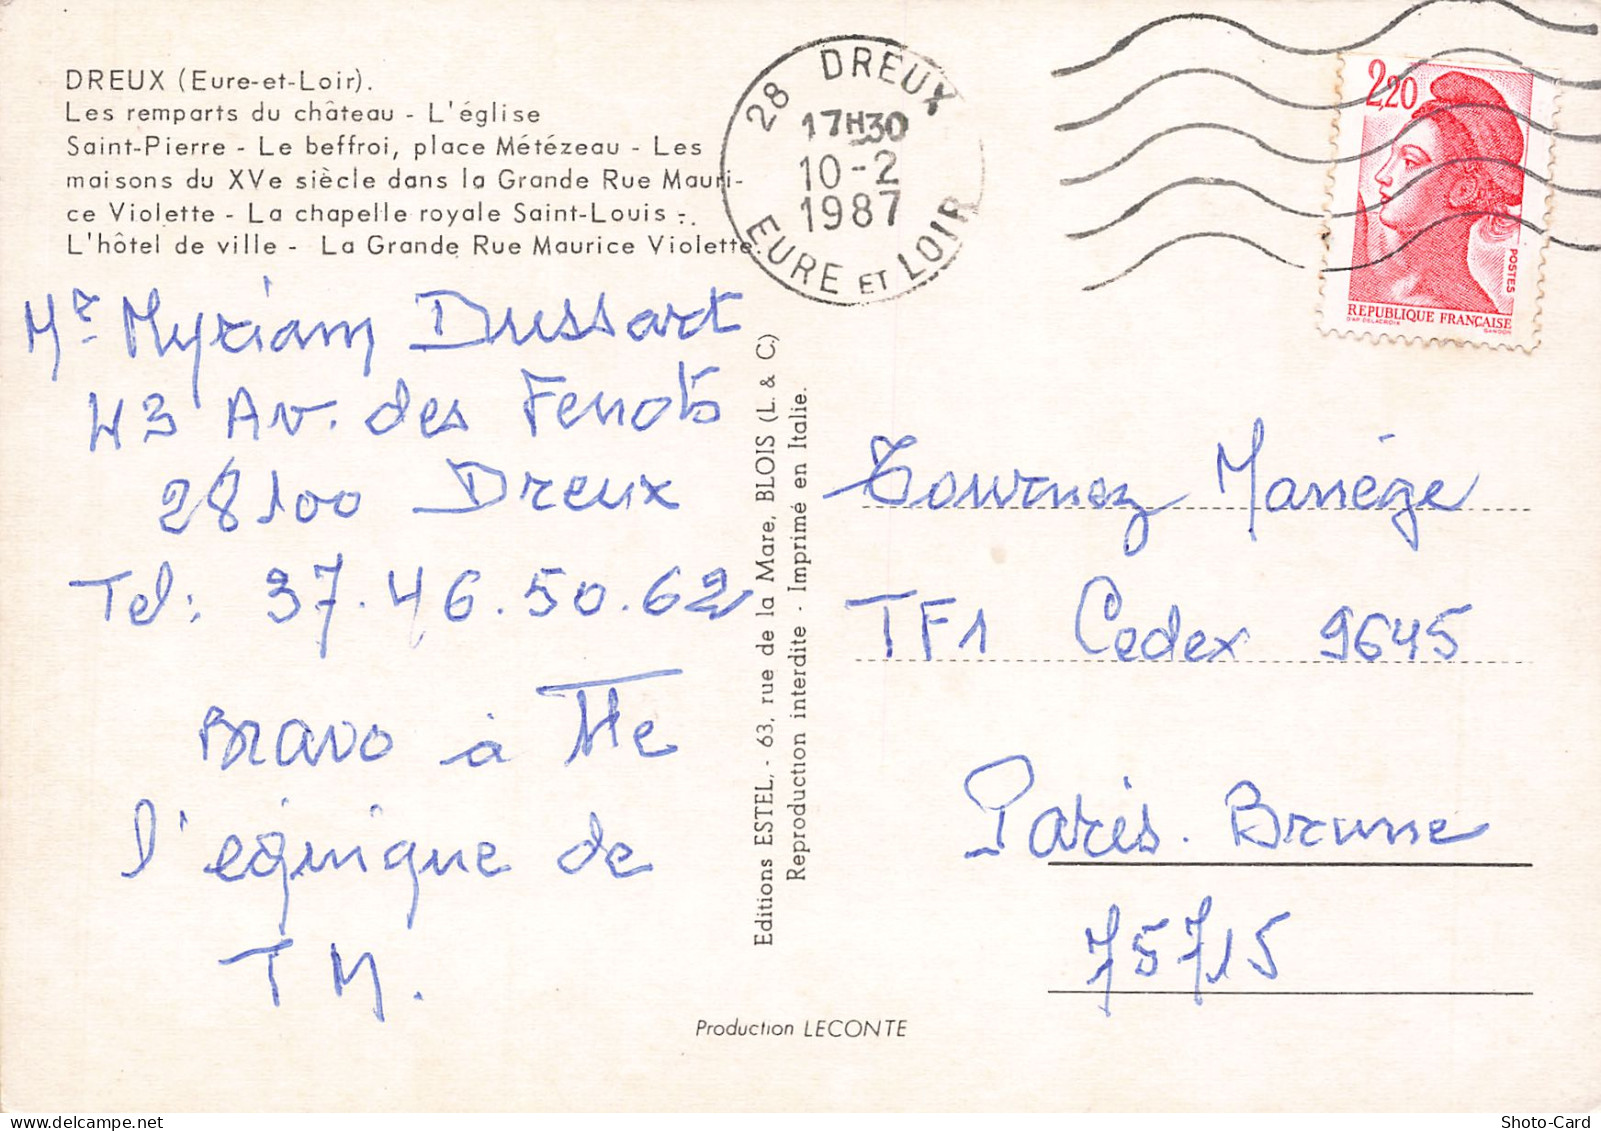 DREUX (Eure-et-Loir).
Les remparts du château - L'église
Saint-Pierre - Le beffroi, place Métézeau - Les
maisons du XVe siècle dans la Grande Rue Mauri-
ce Violette - La chapelle royale Saint-Louis -.
L'hôtel de ville - La Grande Rue Maurice Violette.
Mr Myriam Dussart
43 Av. des Fenots
28100 Dreux
Tel: 37.46.50.62
Bravo à Tte
l'equique de
TM.
28 DREUX
17H30
10-2
1987
EURE ET LOIR
2,20
POSTES
REPUBLIQUE FRANÇAISE
D'AP. DELACROIX GANDON
Editions ESTEL, - 63, rue de la Mare, BLOIS (L. & C)
Reproduction interdite - Imprimé en Italie.
Tournez Manège
TF1 Cedex 9645
Paris. Brune
75715
Production LECONTE
Shoto-Card